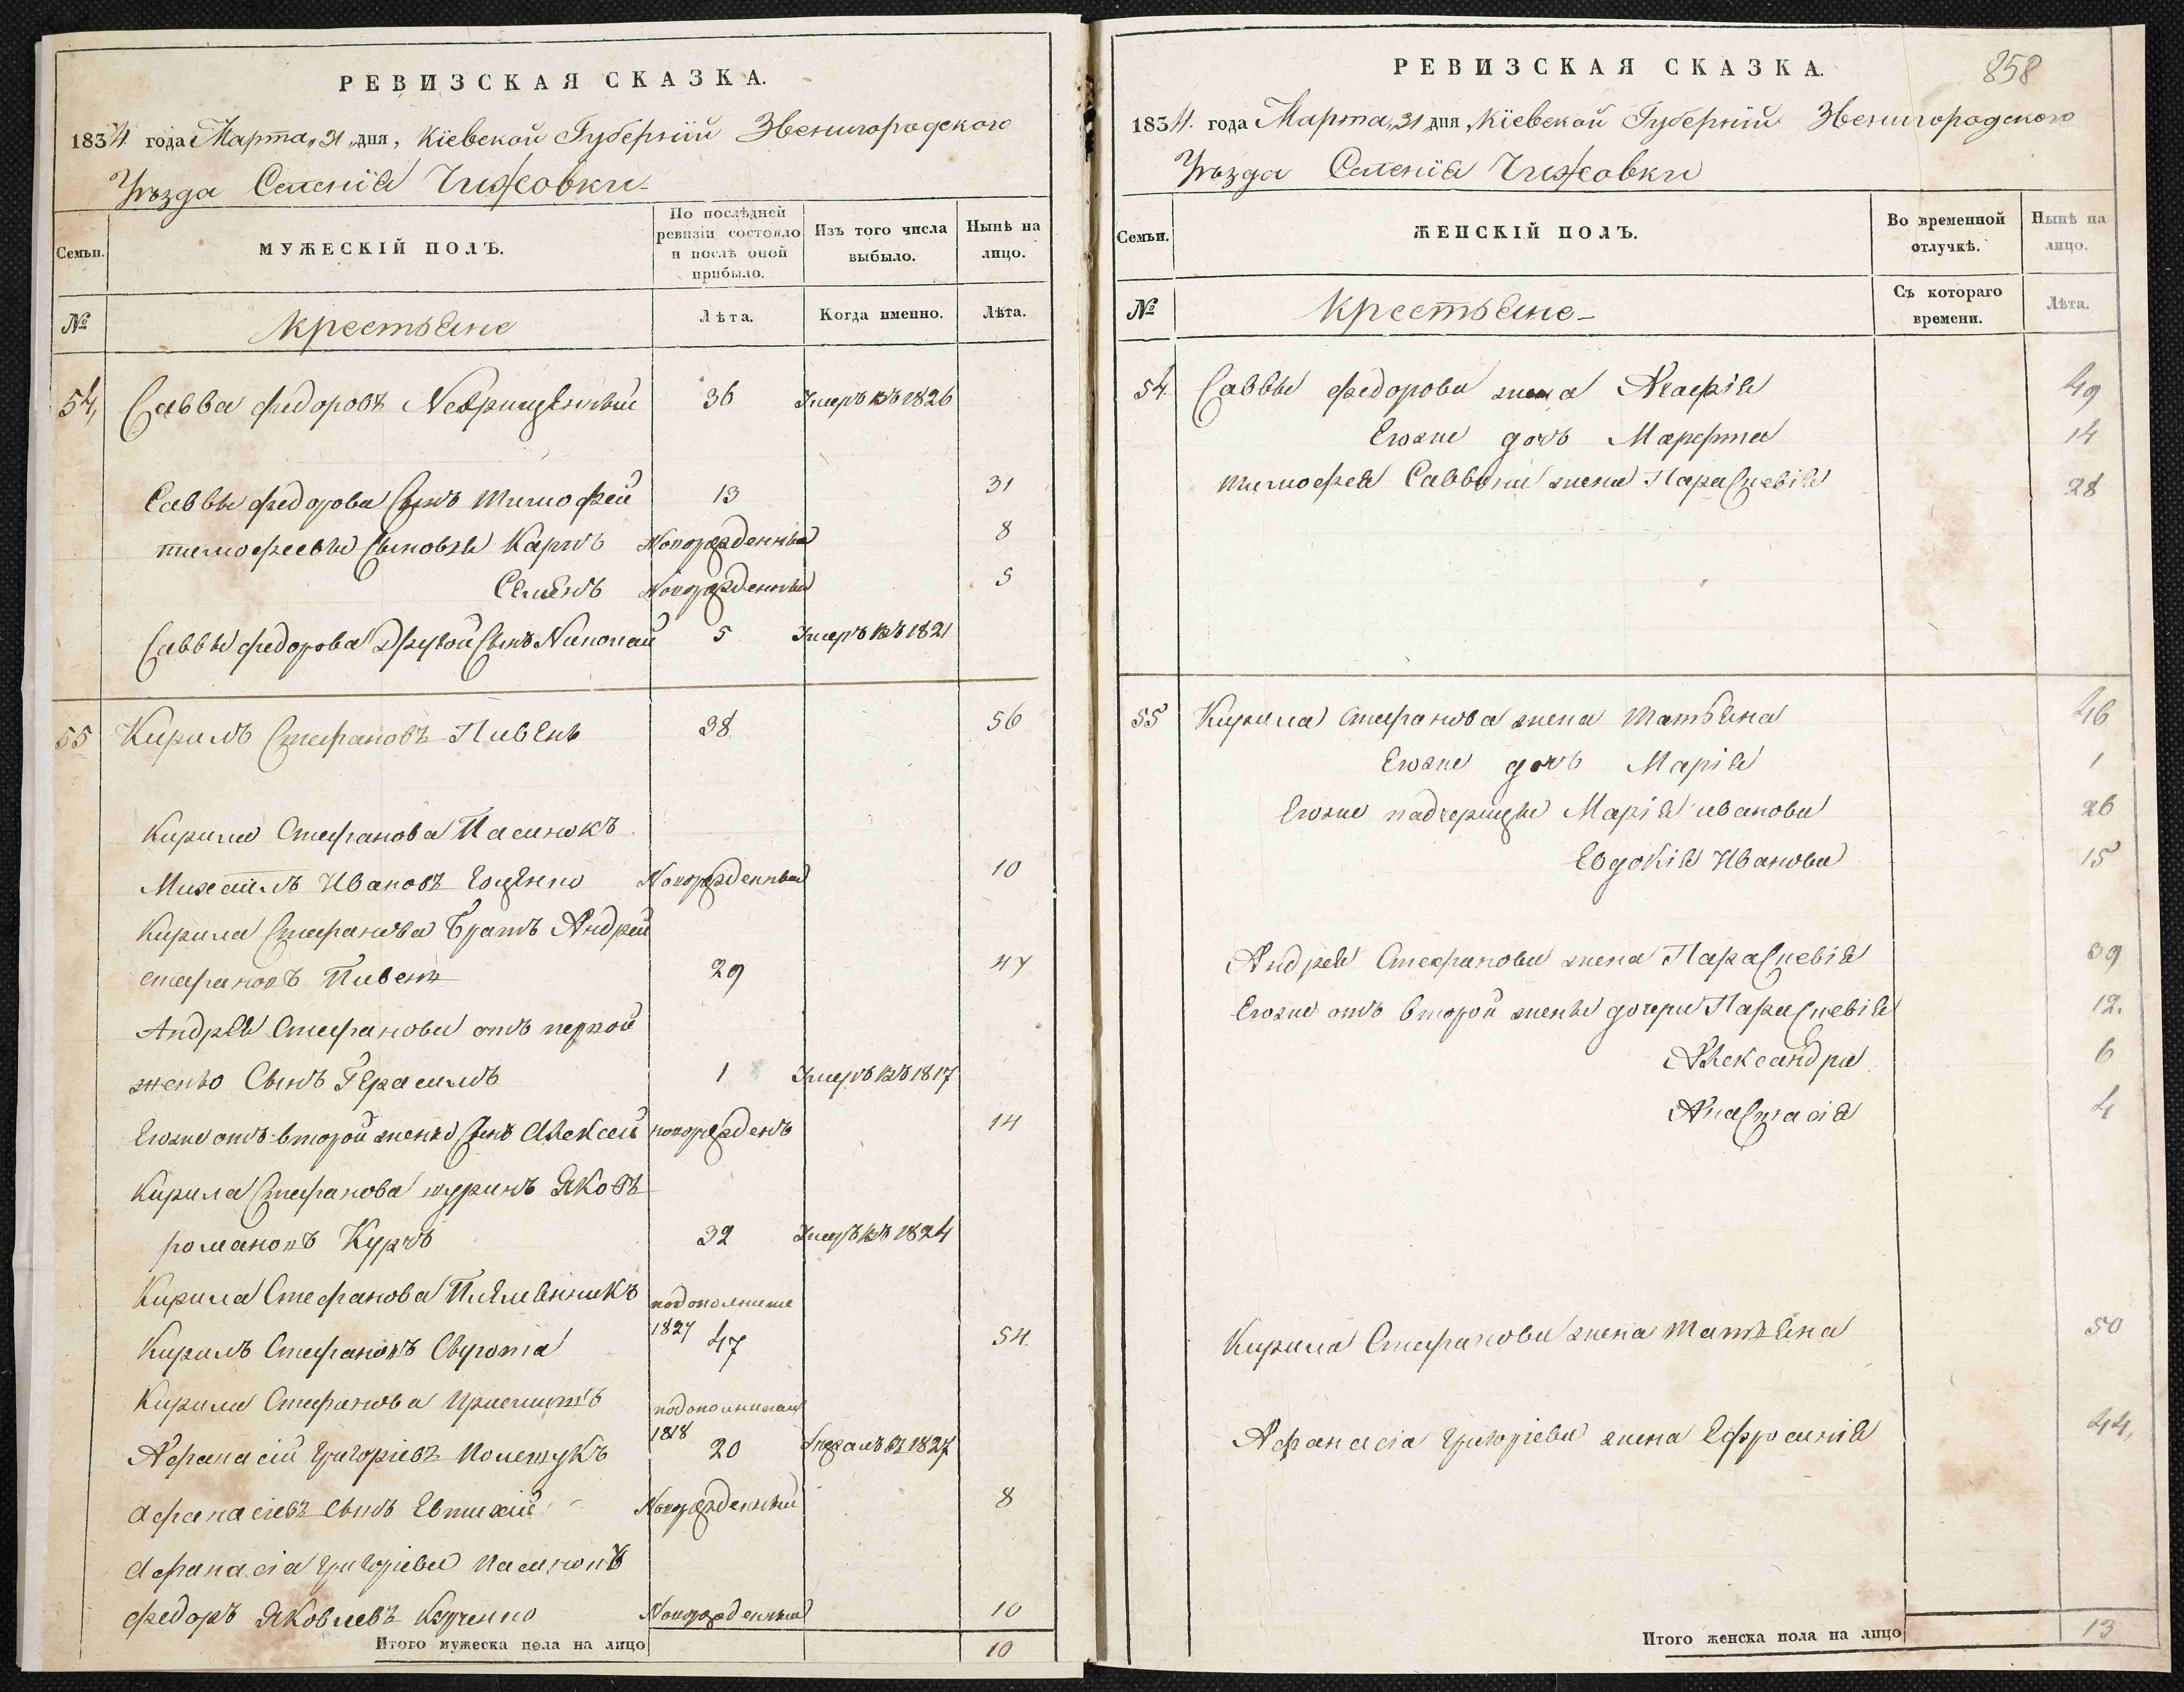 РЕВИЗСКАЯ СКАЗКА.
1834 года Марта „31„ дня, Кіевской Губерніи Звенигородского
Уѣзда Селенія Чижовки
Семьи.
МУЖЕСКІЙ ПОЛЪ.
По послѣдней ревизіи состояло и послѣ оной прибыло.
Изъ того числа выбыло.
Нынѣ на лицо.
№
Крестьяне
Лѣта.
Когда именно.
Лѣта.
54, Савва Федоровъ 36 Умеръ въ 1826
Саввы Федорова Сынъ Тимофей 13 31
Тимофеевы Сыновья Карпъ Новорожденный 8
Семенъ Новорожденный 5
Саввы Федорова Другой Сынъ Николай 5 Умеръ въ 1821
55 Кирилъ Стефановъ Пивень 38 56
Кирила Стефанова Пасинокъ
Михаилъ Ивановъ Новорожденный 10
Кирила Стефанова Братъ Андрей
Стефановъ Пивень 29 47
Андрея Стефанова отъ первой
жены Сынъ Герасимъ 1 Умеръ въ 1817
Егоже отъ второй жены Сынъ Алексей новорожденъ 14
Кирила Стефанова шуринъ Яковъ
Романовъ 32 Умеръ въ 1824
Кирила Стефанова Племенникъ
по дополните 1827
Кирилъ Стефановъ Свирота 47 54
Кирила Стефанова Приемишъ
1818
Афанасій Григоріевъ Полещукъ 20 въ 1827
Афанасіевъ Сынъ Евтихій Новорожденный 8
Афанасія Григоріева Пасинокъ
Федоръ Яковлевъ Новорожденный 10
Итого мужеска пола на лицо 10
РЕВИЗСКАЯ СКАЗКА.
858
1834. года Марта „31„ дня, Кіевской Губерніи Звенигородского
Уѣзда Селенія Чижовки
Семьи.
ЖЕНСКІЙ ПОЛЪ.
Во временной отлучкѣ.
Нынѣ на лицо.
№
Крестьяне
Съ котораго времени.
Лѣта.
54. Саввы Федорова жена Агафія 49
Егоже дочь Марфта 14
Тимофея Саввына жена Параскевія 28
55 Кирила Стефанова жена Татьяна 46
Егоже дочь Марія 1
Егоже падчерицы Марія Иванова 26
Евдокія Иванова 15
Андрея Стефанова жена Параскевія 39
Егоже отъ второй жены дочери Параскевія 12.
Александра 6
Анастасія 4
Кирила Стефанова жена Татьяна 50
Афанасія Григоріева жена Ефросинія 44,
Итого женска пола на лицо 13